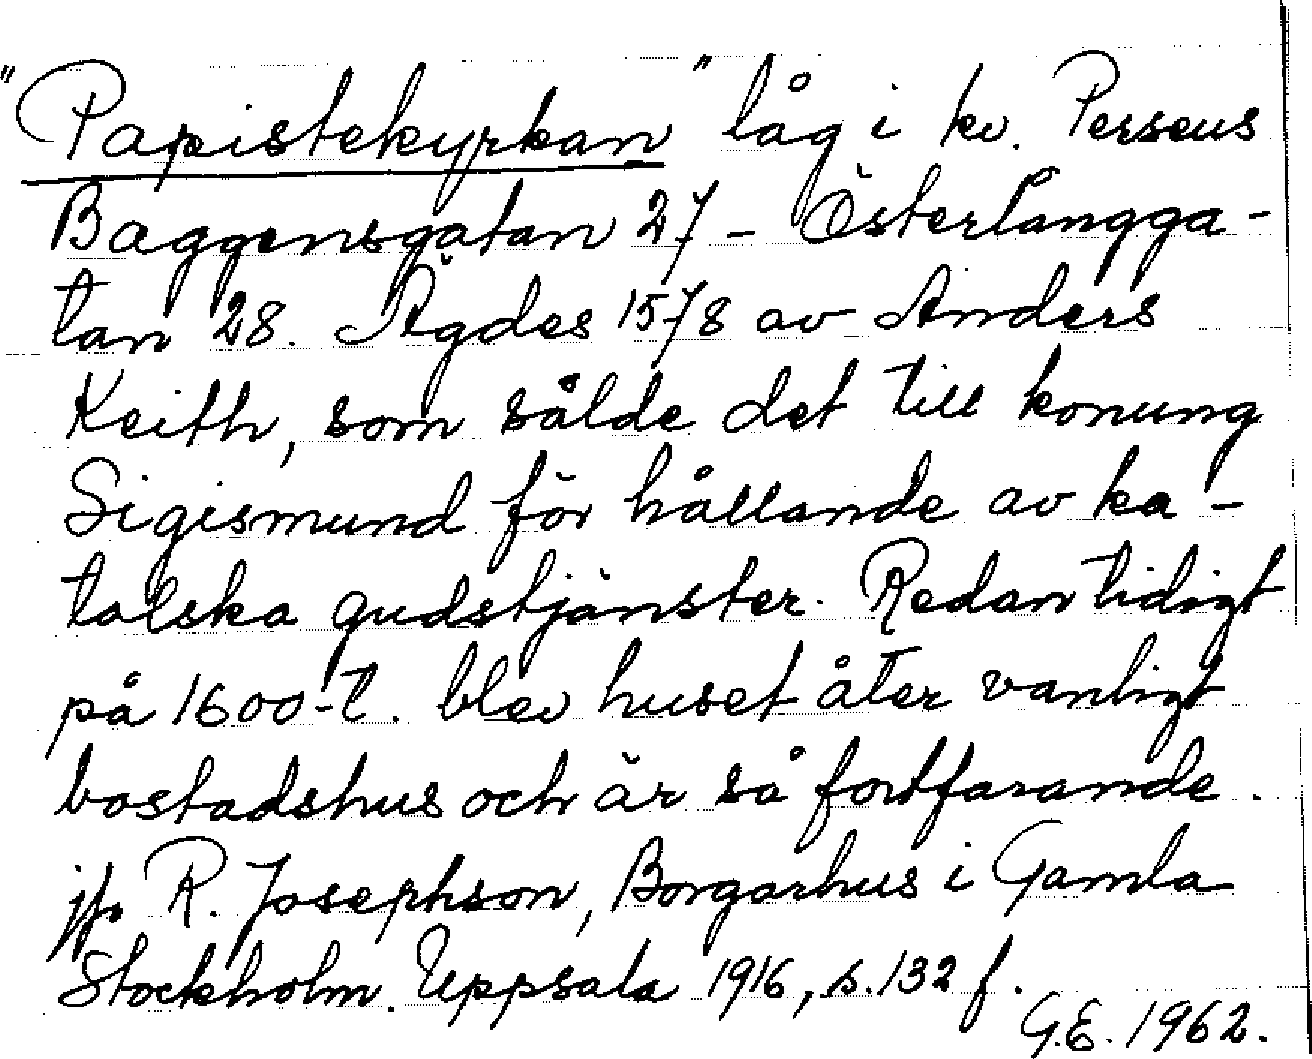 "Papistekyrkan" låg i kv. Perseus
Baggensgatan 27 - Österlångga-
tan 28. Ägdes 1578 av Anders
Keith, som sålde det till konung
Sigismund för hållande av ka-
tolska gudstjänster. Redan tidigt
på 1600-t. blev huset åter vanligt
bostadshus och är så fortfarande.
jfr R. Josephson, Borgarhus i Gamla
Stockholm. Uppsala 1916, s. 132 f.
G.E. 1962.